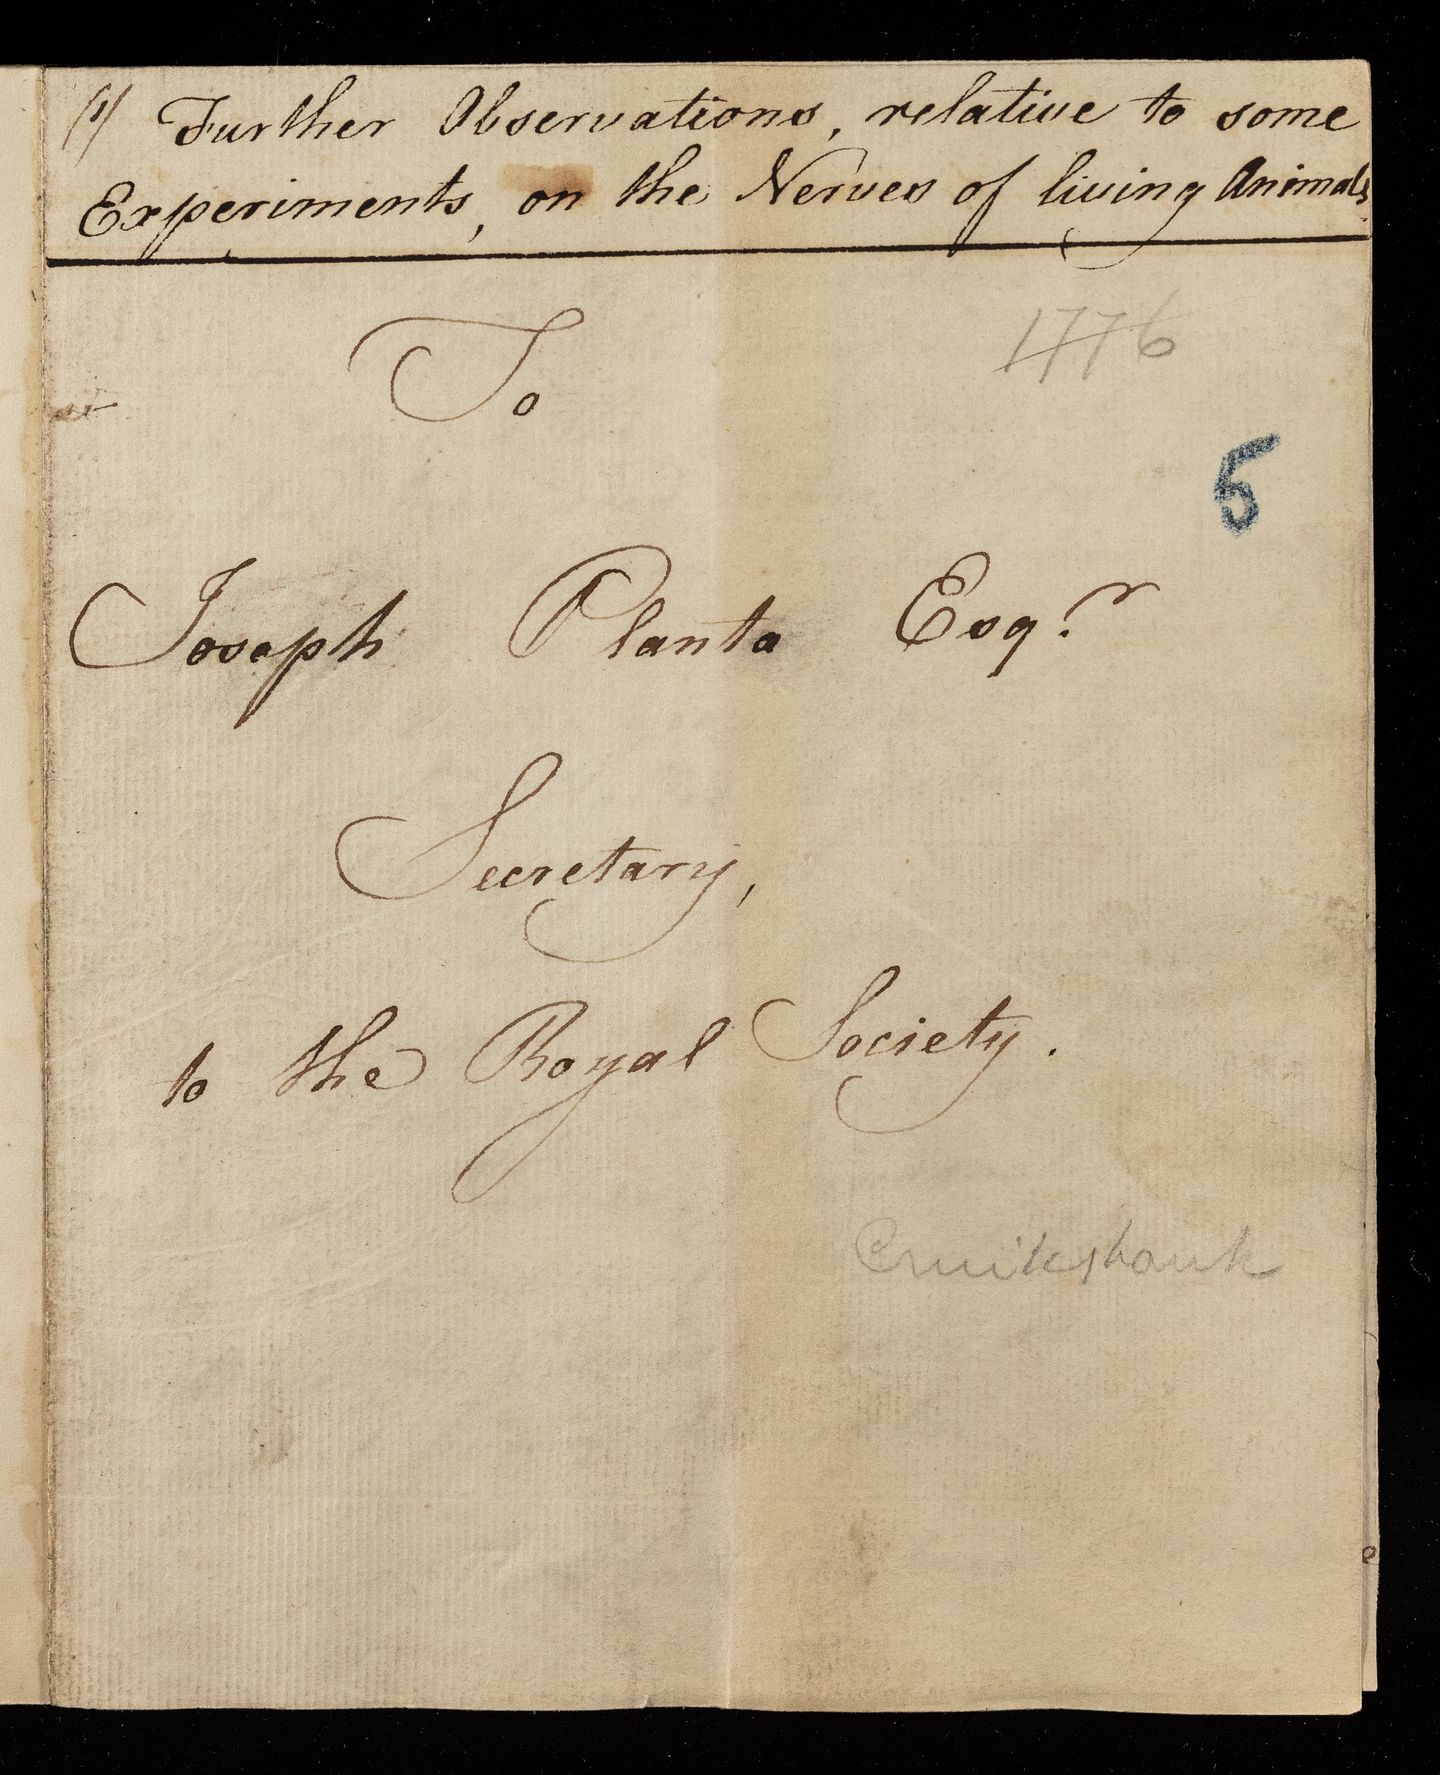 (1) Further Observations, relative to some
Experiments, on the Nerves of living Animals.
To
1776
5
Joseph Planta Esqr.
Secretary,
to the Royal Society.
Cruikshank